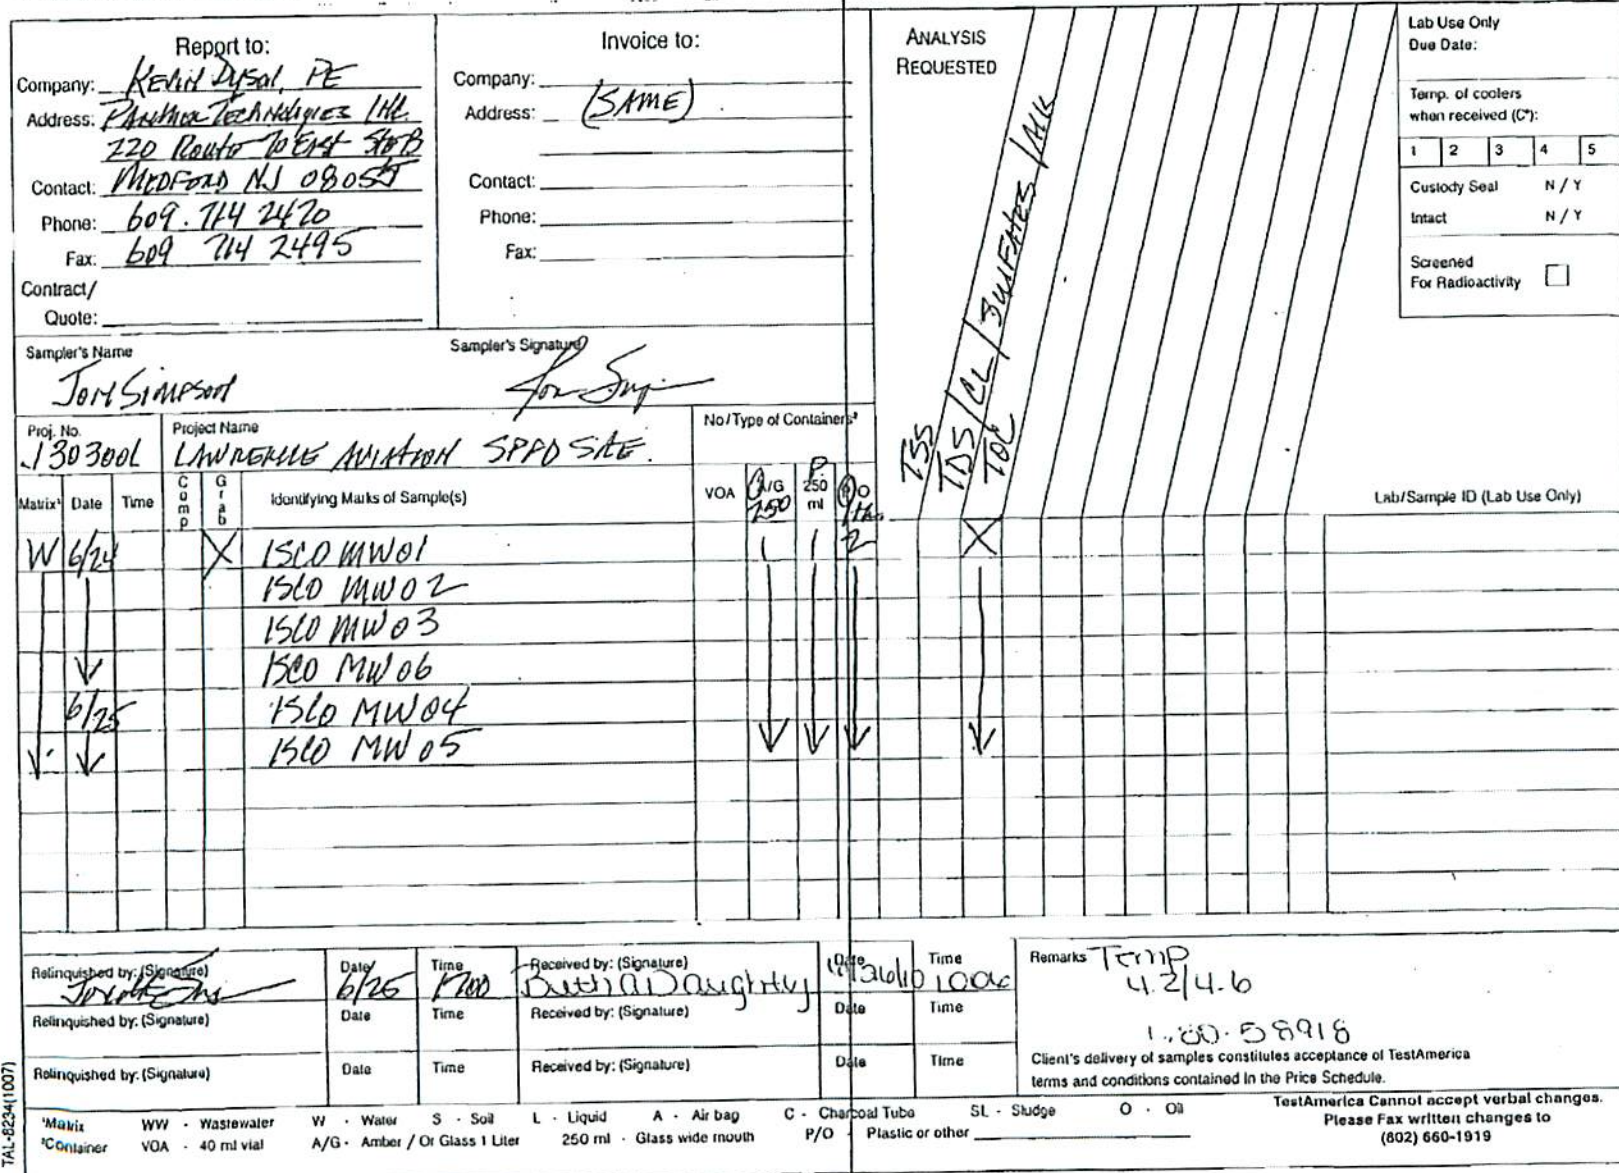 Report to:
Company: Kevin Dysol, PE
Address: Panther Technologies Inc.
220 Route 70 East Ste B
Contact: Medford NJ 08055
Phone: 609.714 2420
Fax: 609 714 2495
Contract/
Quote:
Invoice to:
Company:
Address: (SAME)
Contact:
Phone:
Fax:
ANALYSIS
REQUESTED
TSS
TDS/CL/SULFATES/Alk
TOC
Lab Use Only
Due Date:
Temp. of coolers
when received (C°):
1 2 3 4 5
Custody Seal N / Y
Intact N / Y
Screened
For Radioactivity
Sampler's Name
Jon Simpson
Sampler's Signature
Proj. No.
Project Name
LAWRENCE AVIATION SPFD SITE.
No/Type of Containers²
Matrix¹ Date Time Comp Grab Identifying Marks of Sample(s) VOA A/G 250 P 250 ml P/O Lab/Sample ID (Lab Use Only)
W 6/24 X ISCO MW01 1 1 2 X
ISCO MW02
ISCO MW03
ISCO MW06
6/25 ISCO MW04
ISCO MW05
Relinquished by: (Signature) Date 6/25 Time 1700 Received by: (Signature) Date Time
Remarks Temp
4.2/4.6
Relinquished by: (Signature) Date Time Received by: (Signature) Date Time
Relinquished by: (Signature) Date Time Received by: (Signature) Date Time
Client's delivery of samples constitutes acceptance of TestAmerica
terms and conditions contained in the Price Schedule.
¹Matrix WW - Wastewater W - Water S - Soil L - Liquid A - Air bag C - Charcoal Tube SL - Sludge O - Oil
²Container VOA - 40 ml vial A/G - Amber / Or Glass 1 Liter 250 ml - Glass wide mouth P/O - Plastic or other
TestAmerica Cannot accept verbal changes.
Please Fax written changes to
(802) 660-1919
TAL-8234(1007)